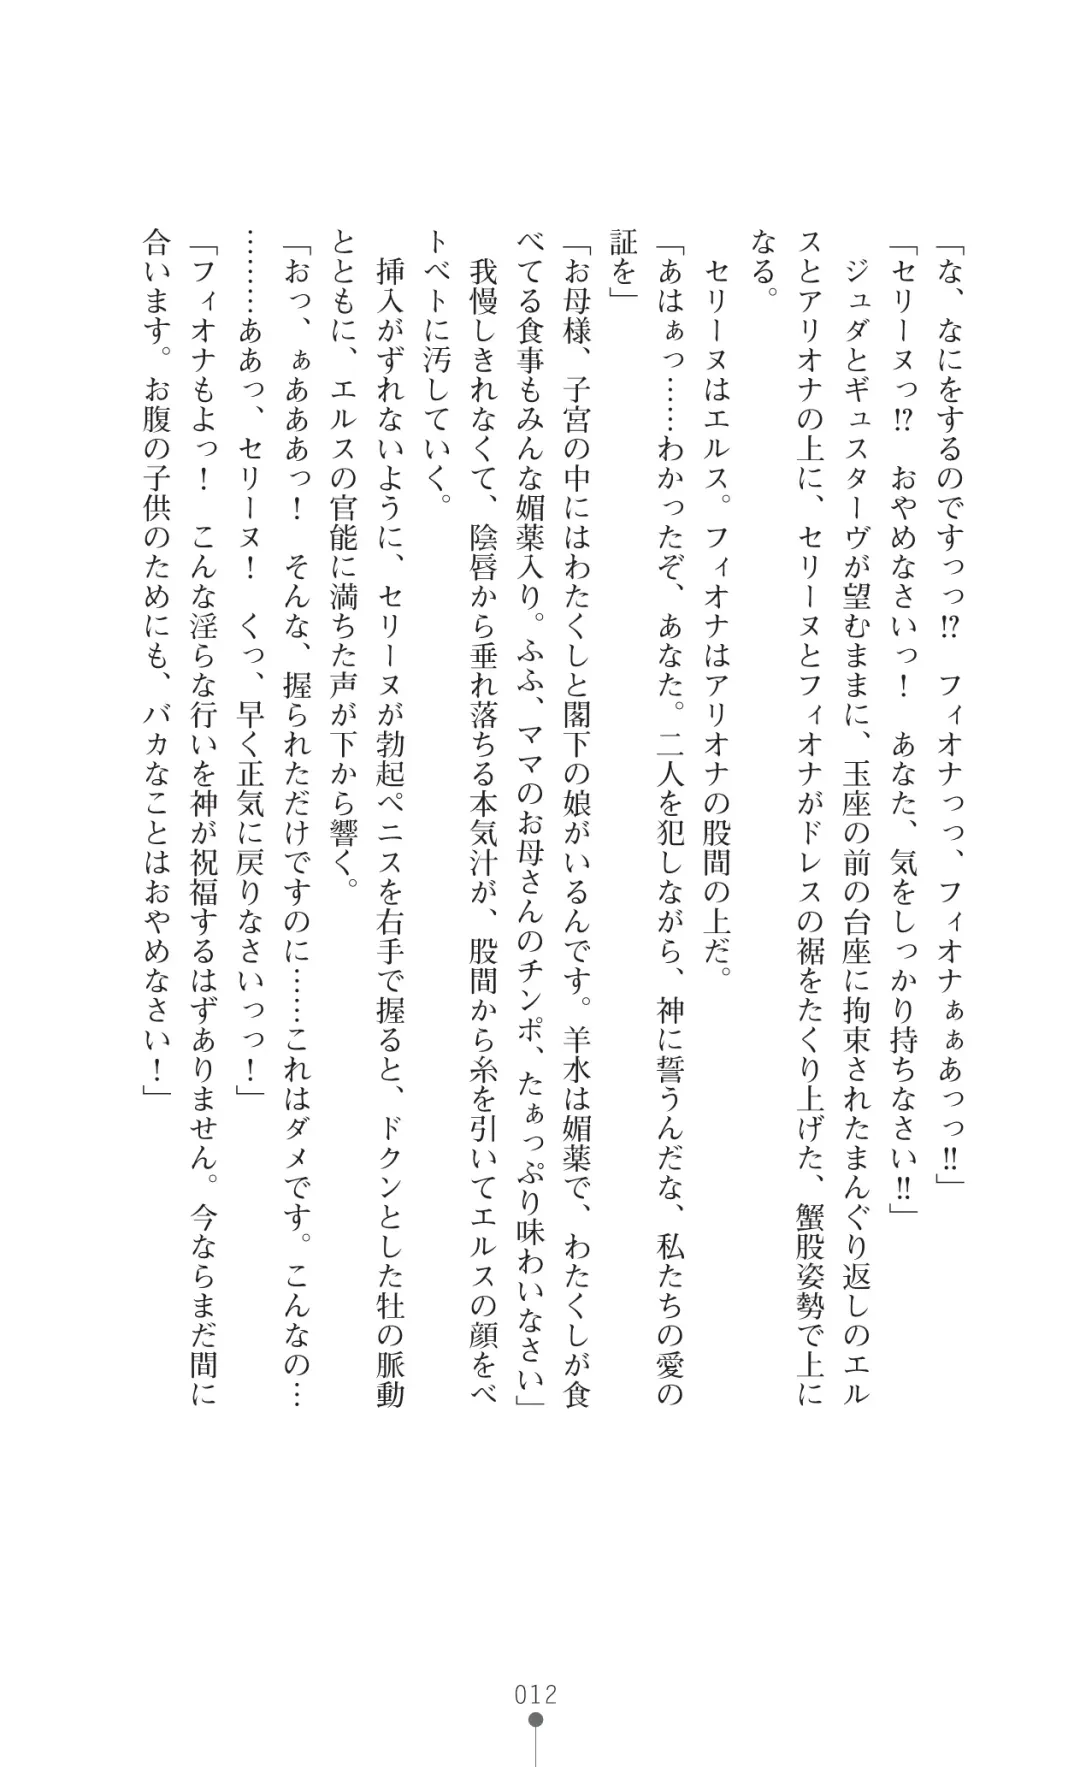 「な、なにをするのですっっ!?　フィオナっっ、フィオナぁぁあっっ!!」
「セリーヌっ!?　おやめなさいっ！　あなた、気をしっかり持ちなさい!!」
　ジュダとギュスターヴが望むままに、玉座の前の台座に拘束されたまんぐり返しのエル
スとアリオナの上に、セリーヌとフィオナがドレスの裾をたくり上げた、蟹股姿勢で上に
なる。
　セリーヌはエルス。フィオナはアリオナの股間の上だ。
「あはぁっ……わかったぞ、あなた。二人を犯しながら、神に誓うんだな、私たちの愛の
証を」
　我慢しきれなくて、陰唇から垂れ落ちる本気汁が、股間から糸を引いてエルスの顔をベ
トベトに汚していく。
　挿入がずれないように、セリーヌが勃起ペニスを右手で握ると、ドクンとした牡の脈動
とともに、エルスの官能に満ちた声が下から響く。
「おっ、ぁあああっ！　そんな、握られただけですのに……これはダメです。こんなの…
………ああっ、セリーヌ！　くっ、早く正気に戻りなさいっっ！」
「フィオナもよっ！　こんな淫らな行いを神が祝福するはずありません。今ならまだ間に
合います。お腹の子供のためにも、バカなことはおやめなさい！」
012